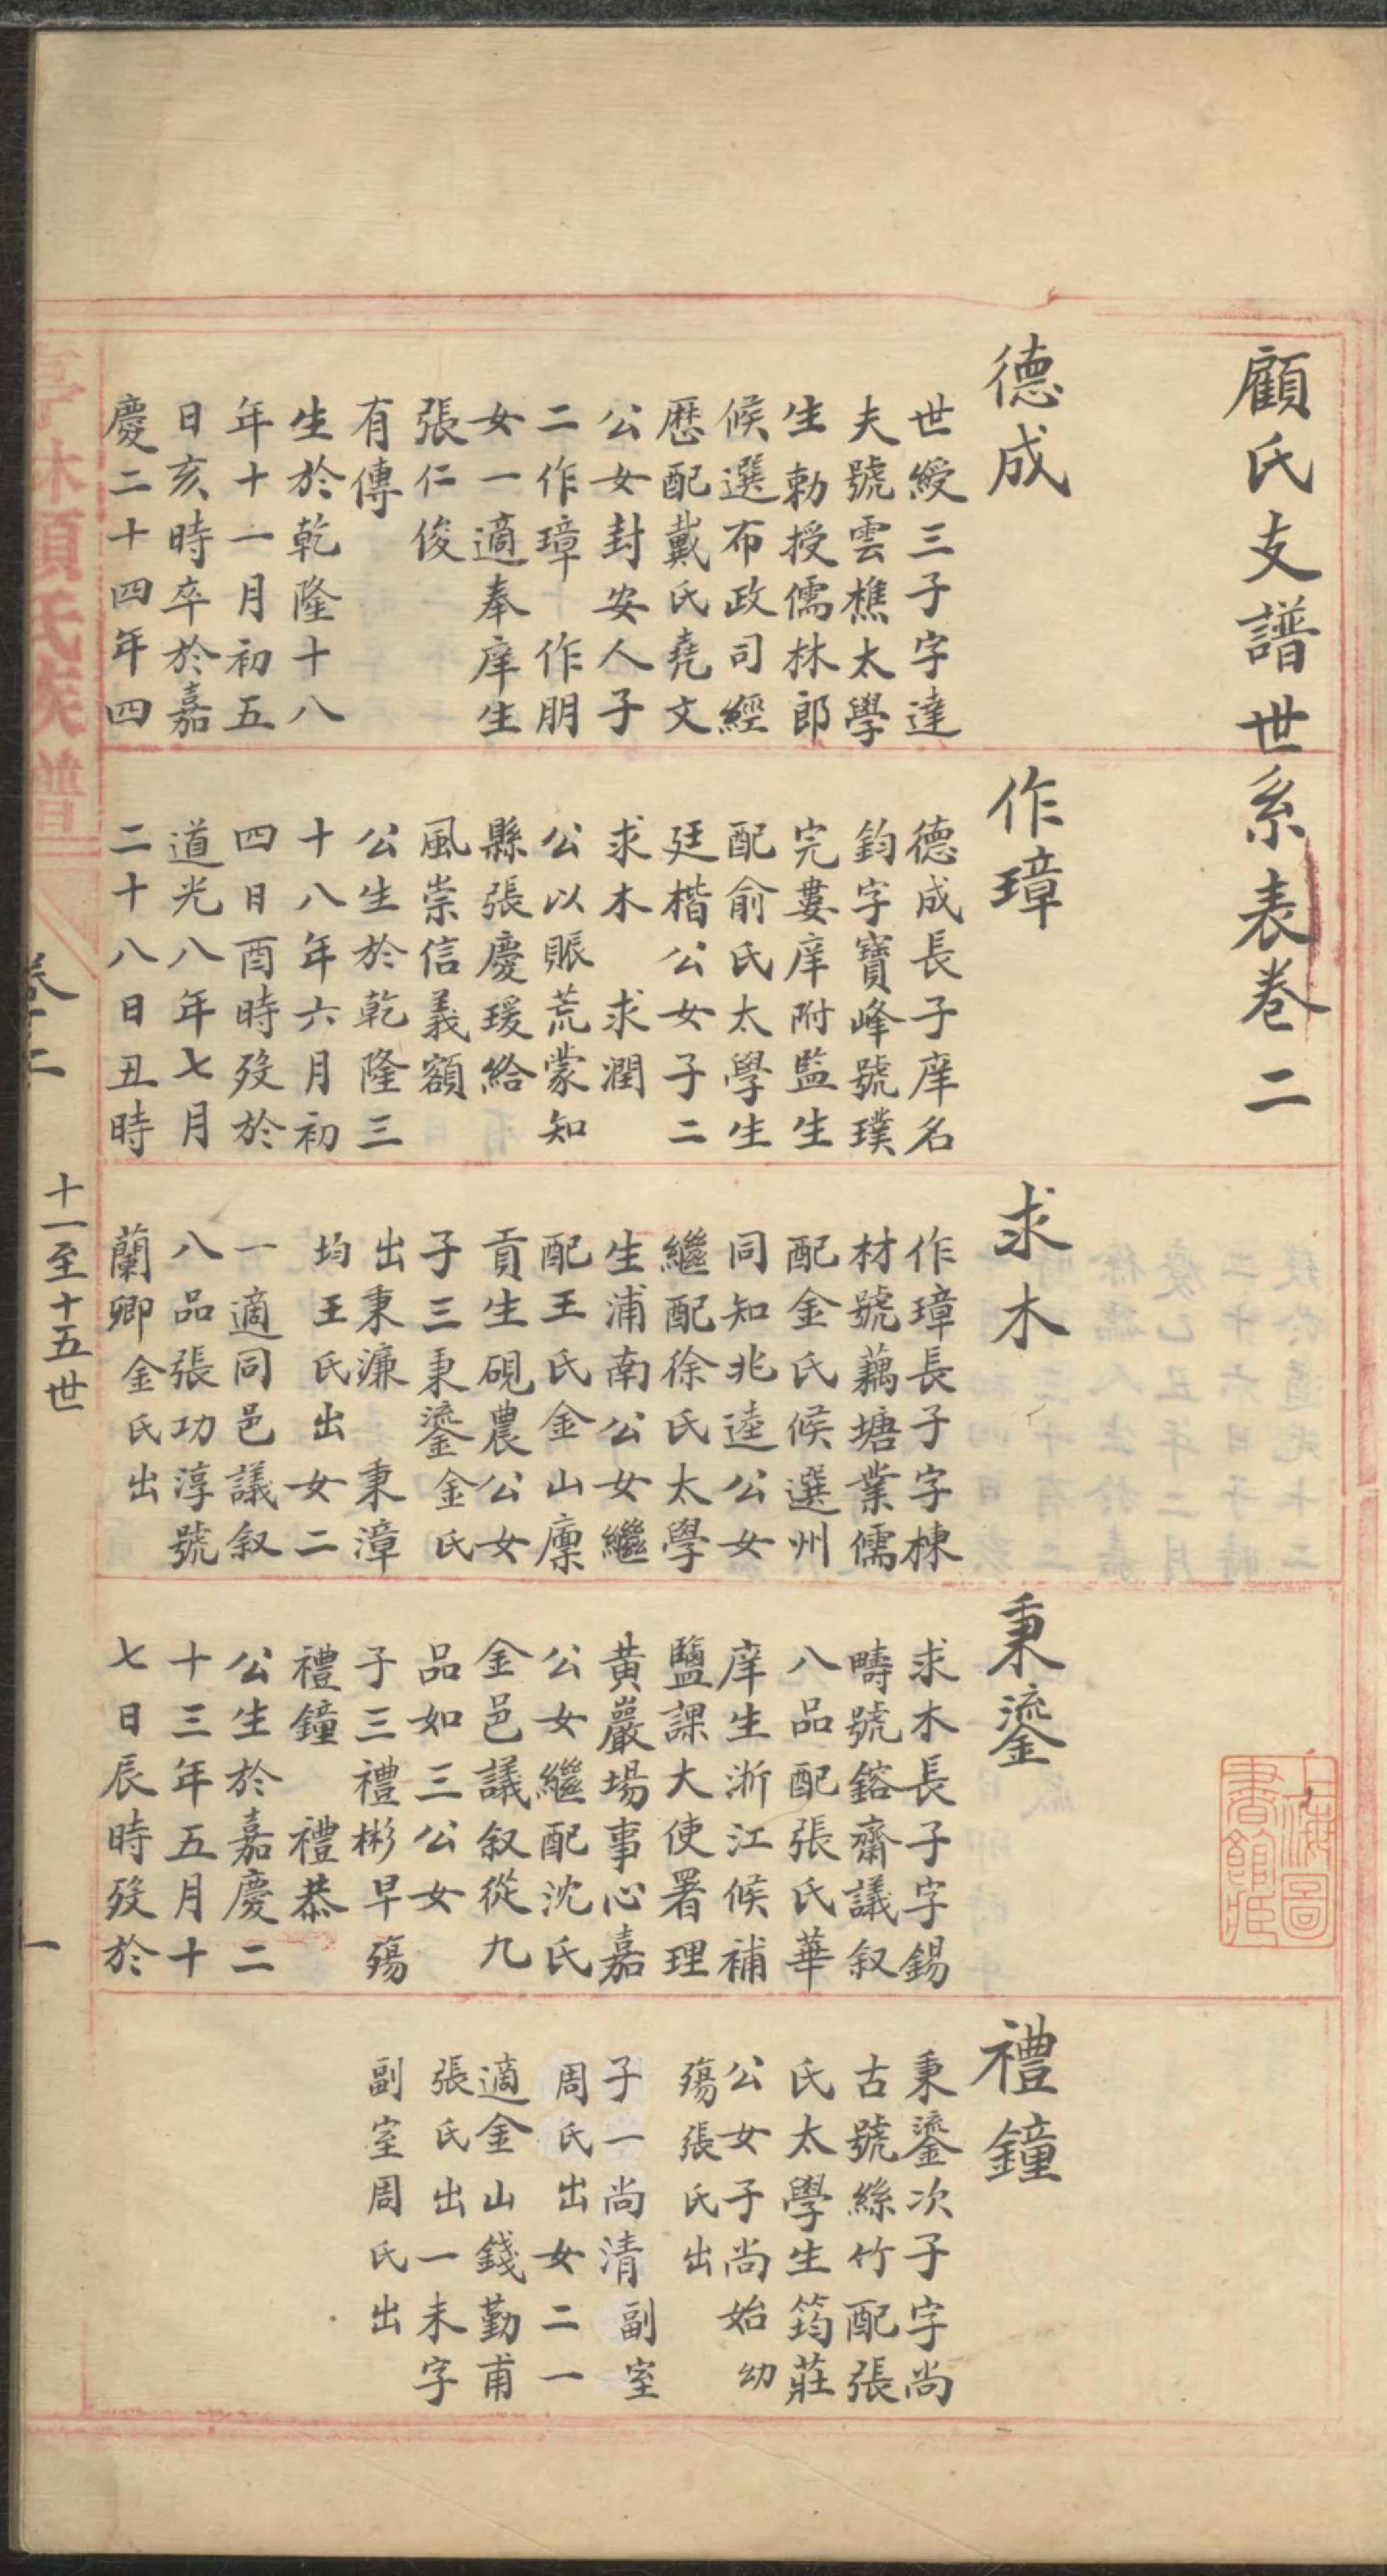 顧氏支譜世系表卷二
德成
世綬三子字達
夫號雲樵太學
生勅授儒林郎
候選布政司經
歷配戴氏堯文
公女封安人子
二作璋 作朋
女一適奉庠生
張仁俊
有傳
生於乾隆十八
年十一月初五
日亥時卒於嘉
慶二十四年四
作璋
德成長子庠名
鈞字寶峰號璞
完婁庠附監生
配俞氏太學生
廷楷公女子二
求木 求潤
公以賑荒蒙知
縣張慶瑗給
風崇信義額
公生於乾隆三
十八年六月初
四日酉時歿於
道光八年七月
二十八日丑時
求木
作璋長子字棟
材號藕塘業儒
配金氏候選州
同知兆逵公女
繼配徐氏太學
生浦南公女繼
配王氏金山廩
貢生硯農公女
子三秉鎏金氏
出秉濂 秉漳
均王氏出 女二
一適同邑議叙
八品張功淳號
蘭卿金氏出
秉鎏
求木長子字錫
疇號鎔齋議叙
八品配張氏華
庠生浙江候補
鹽課大使署理
黃巖場事心嘉
公女繼配沈氏
金邑議叙從九
品如三公女
子三禮彬早殤
禮鐘 禮恭
公生於嘉慶二
十三年五月十
七日辰時歿於
禮鐘
秉鎏次子字尚
古號絲竹配張
氏太學生筠莊
公女子尚始幼
殤張氏出
子一尚清副室
周氏出女二一
適金山錢勤甫
張氏出一未字
副室周氏出
亭林顧氏族譜
卷二
十一至十五世
一
上海圖
書館藏